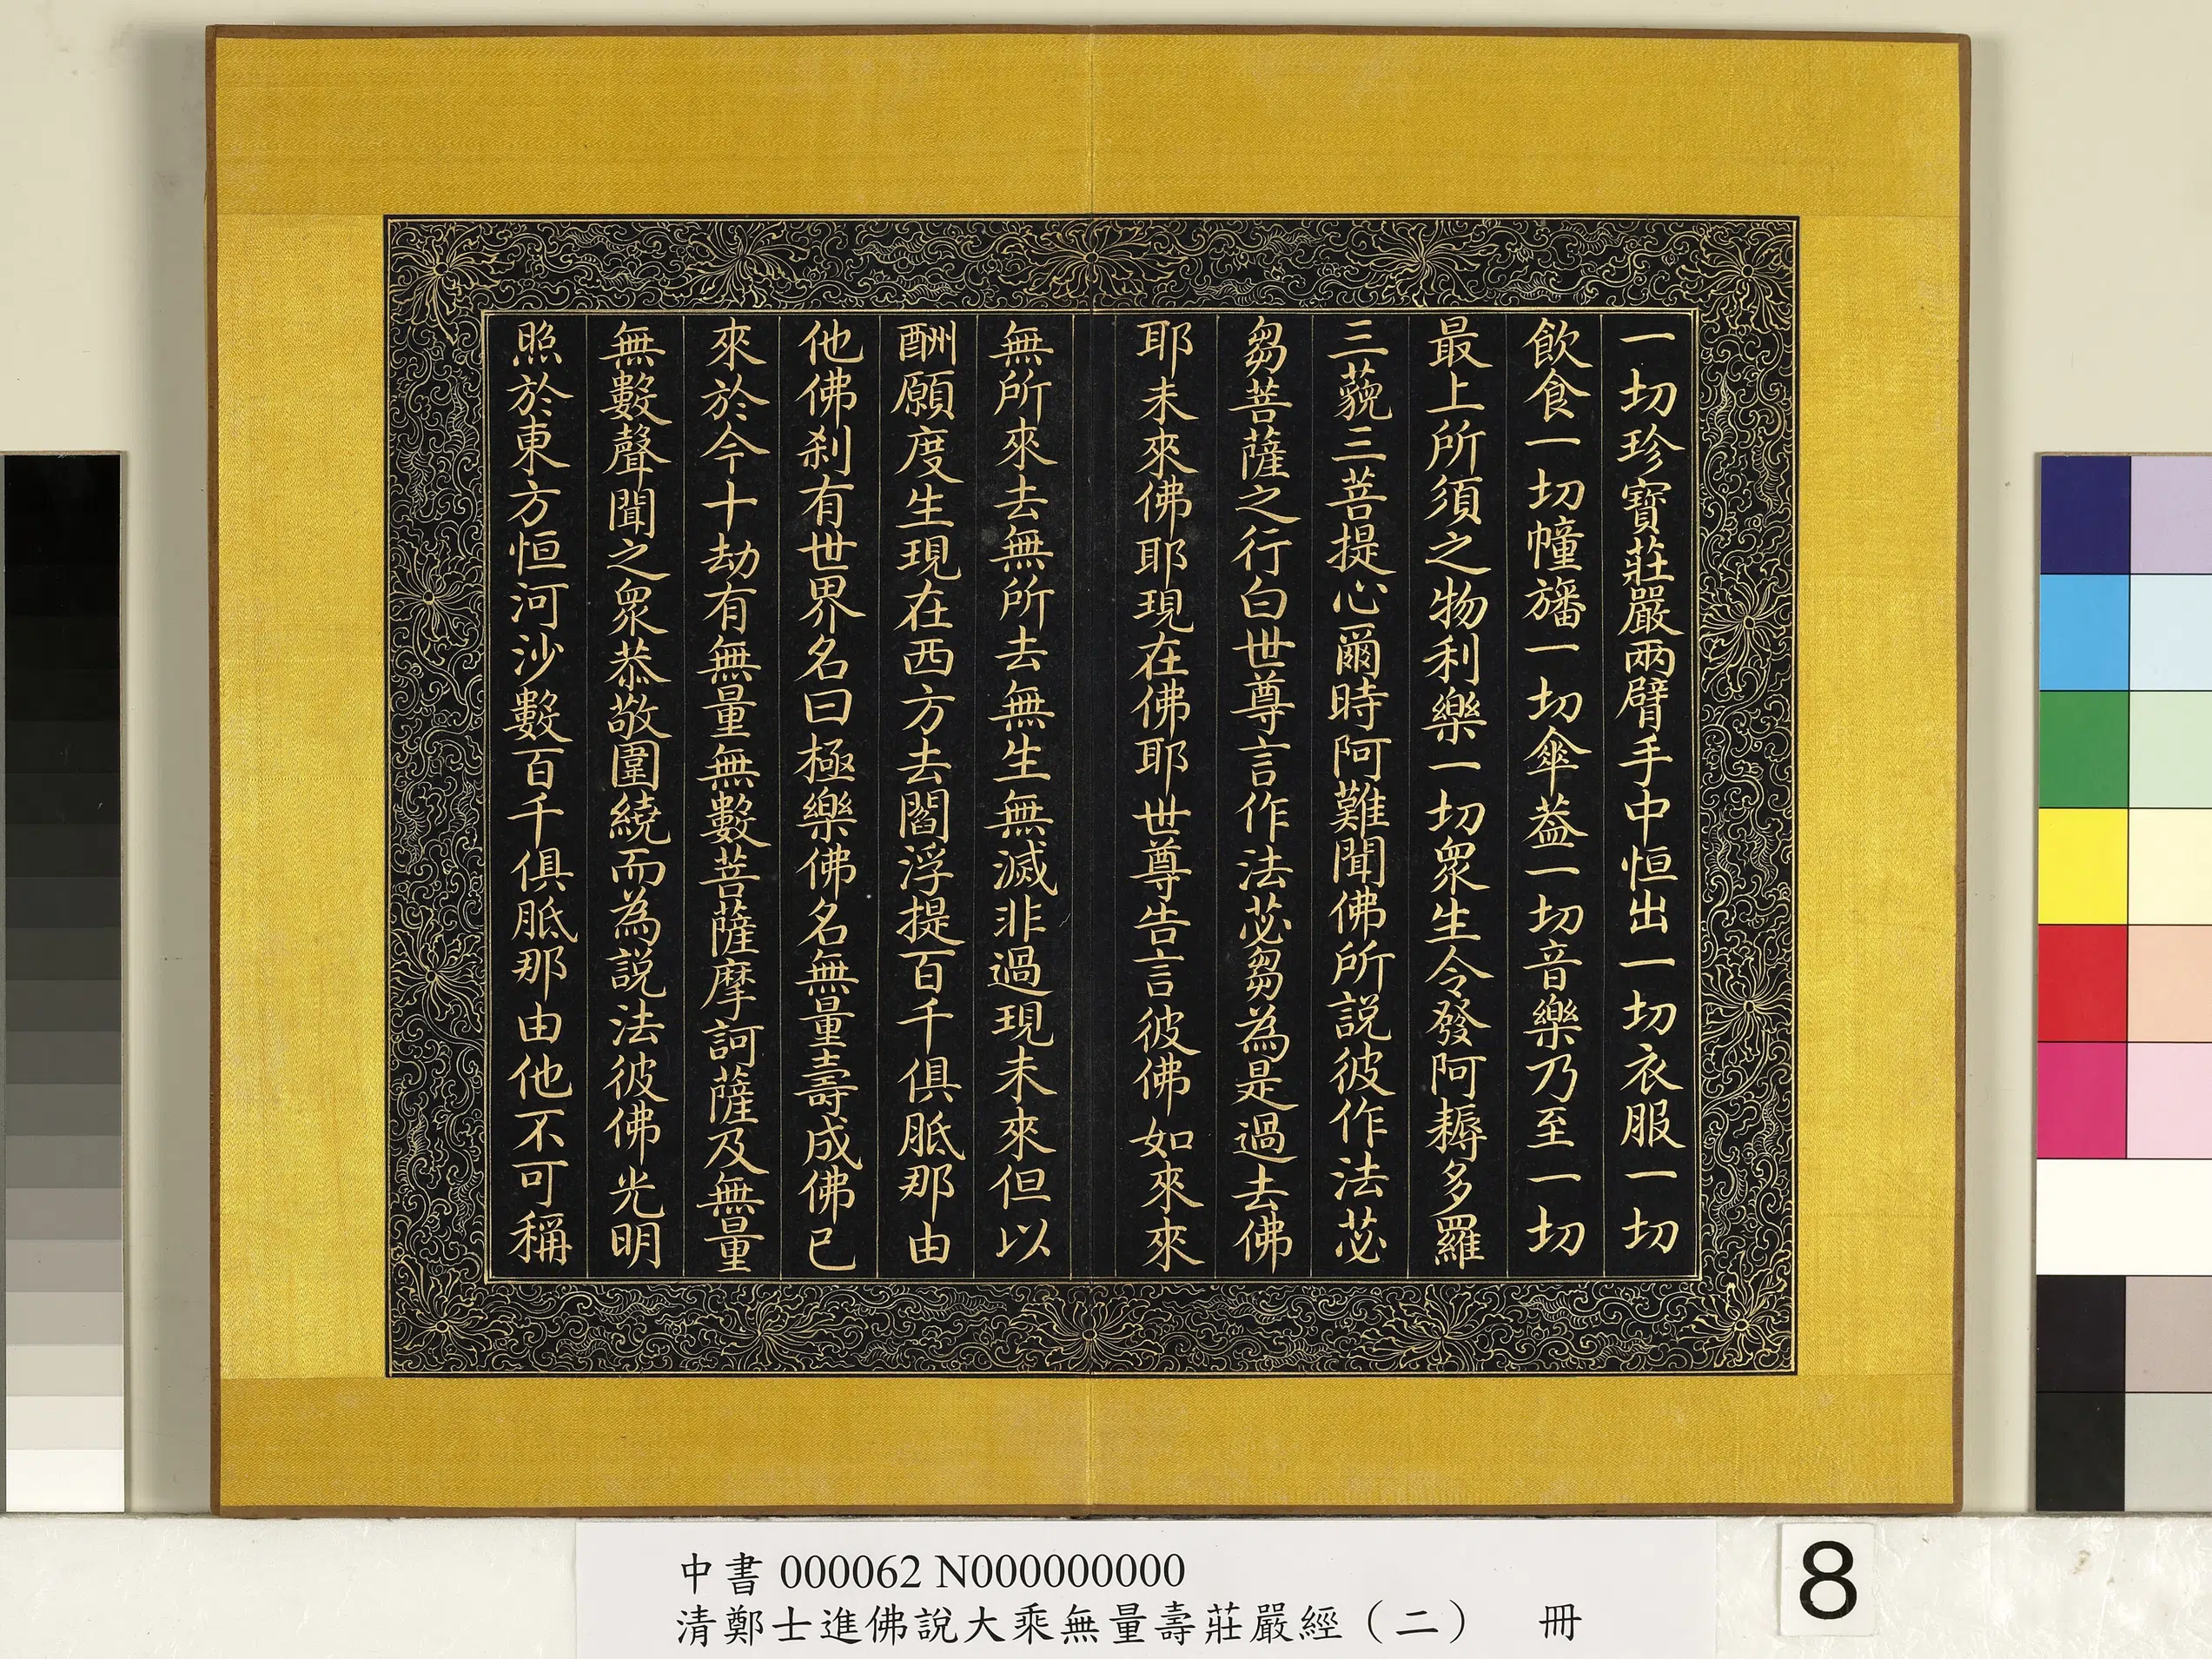 一切珍寶莊嚴兩臂手中恒出一切衣服一切
飲食一切幢旛一切傘葢一切音樂乃至一切
最上所須之物利樂一切衆生令發阿耨多羅
三藐三菩提心爾時阿難聞佛所説彼作法苾
芻菩薩之行白世尊言作法苾芻為是過去佛
耶未來佛耶現在佛耶世尊告言彼佛如來來
無所來去無所去無生無滅非過現未來但以
酬願度生現在西方去閻浮提百千俱胝那由
他佛刹有世界名曰極樂佛名無量壽成佛已
來於今十劫有無量無數菩薩摩訶薩及無量
無數聲聞之衆恭敬圍繞而為説法彼佛光明
照於東方恒河沙數百千俱胝那由他不可稱
中書 000062 N000000000
清鄭士進佛說大乘無量壽莊嚴經（二） 冊
8